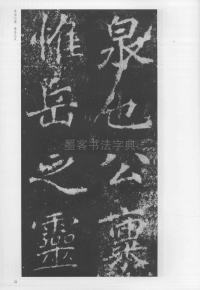 泉也公稟
惟岳之靈
墨客书法字典